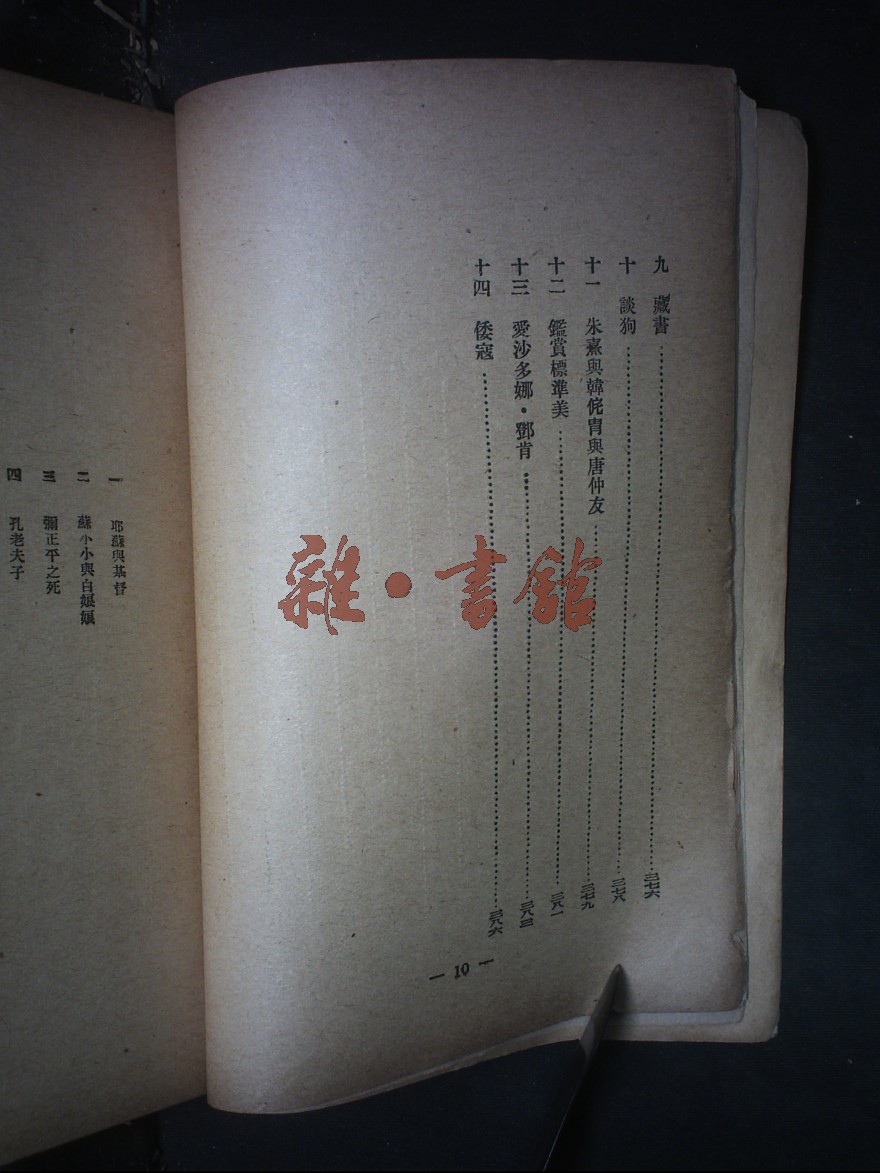 九　藏書…………三七六
十　談狗…………三七八
十一　朱熹與韓侂冑與唐仲友…………三七九
十二　鑑賞標準美…………三八一
十三　愛沙多娜・鄧肯…………三八三
十四　倭寇…………三八六
— 10 —
一　耶蘇與基督
二　蘇小小與白娘娘
三　彌正平之死
四　孔老夫子
雜・書館